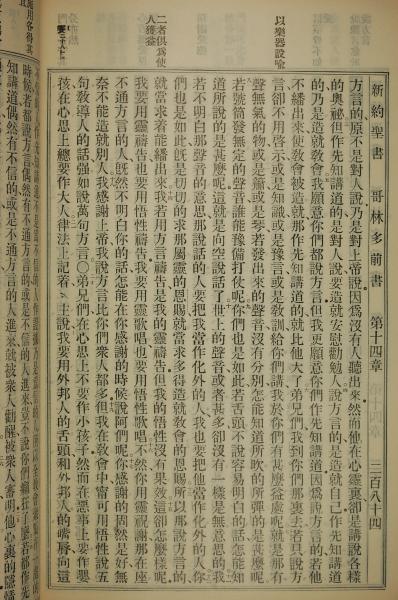 新約聖書 哥林多前書 第十四章 三百八十四
以樂器設喻
二者俱為使
人獲益
方言的原不是對人說乃是對上帝說因為沒有人聽出來然而他在心靈裏卻是講說各樣
的奧祕但作先知講道的是對人說要造就安慰勸勉人說方言的是造就自己作先知講道
的乃是造就教會我願意你們都說方言但我更願意你們作先知講道因為說方言的若他
不繙出來使教會被造就那作先知講道的就比他大了弟兄們我到你們那裏去若只說方
言卻不用啓示或是知識或是豫言或是教訓給你們講我於你們有甚麼益處呢就是那有
聲無氣的物或是簫或是琴若發出來的聲音沒有分別怎能知道所吹的所彈的是甚麼呢
若號筒發無定的聲音誰能豫備打仗呢你們也是如此若舌頭不說容易明白的話怎能知
道所說的是甚麼呢這就是向空說話了世上的聲音或者甚多卻沒有一樣是無意思的我
若不明白那聲音的意思那說話的人要把我當作化外的人我也要把他當作化外的人你
們也是如此既是切切的求那屬靈的恩賜就當求多得造就教會的恩賜所以那說方言的
就當求著能繙出來我若用方言禱告是我的靈禱告但我的悟性沒有果效這卻怎麼樣呢
我要用靈禱告也要用悟性禱告我要用靈歌唱也要用悟性歌唱不然你用靈祝謝那在座
不通方言的人既然不明白你的話怎能在你感謝的時候說阿們呢你感謝的固然是好無
奈不能造就別人我感謝上帝我說方言比你們衆人都多但我在教會中甯可用悟性說五
句教導人的話强如說萬句方言○弟兄們在心思上不要作小孩子然而在惡事上要作嬰
孩在心思上總要作大人律法上記着主說我要用外邦人的舌頭和外邦人的嘴唇向這
時候若都說方言偶然有不通方言的或是不信的人進來豈不說你們癲狂了麼若都作先
知講道偶然有不信的或是不通方言的人進來就被衆人勸醒被衆人審明他心裏的隱情